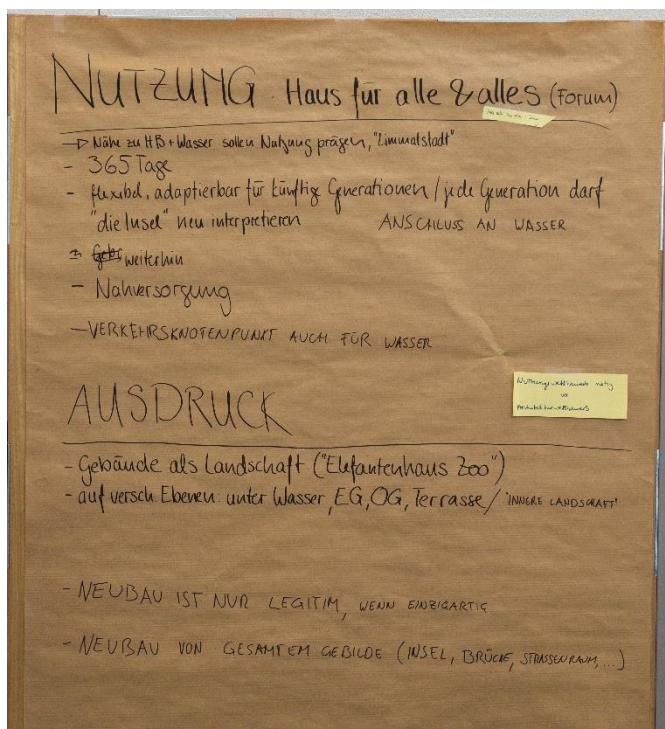 NUTZUNG Haus für alle & alles (Forum)
Nähe zu HB + Wasser sollen Nutzung prägen, "Limmatstadt"
- 365 Tage
- flexibel, adaptierbar für künftige Generationen / jede Generation darf
"die Insel" neu interpretieren ANSCHLUSS AN WASSER
weiterhin
- Nahversorgung
- VERKEHRSKNOTENPUNKT AUCH FÜR WASSER
Nutzungswettbewerb nötig
vs
Architekturwettbewerb
AUSDRUCK
- Gebäude als Landschaft ("Elefantenhaus Zoo")
- auf versch Ebenen: unter Wasser, EG, OG, Terrasse / "INNERE LANDSCHAFT"
- NEUBAU IST NUR LEGITIM, WENN EINZIGARTIG
- NEUBAU VON GESAMTEM GEBILDE (INSEL, BRÜCKE, STRASSENRAUM, ...)